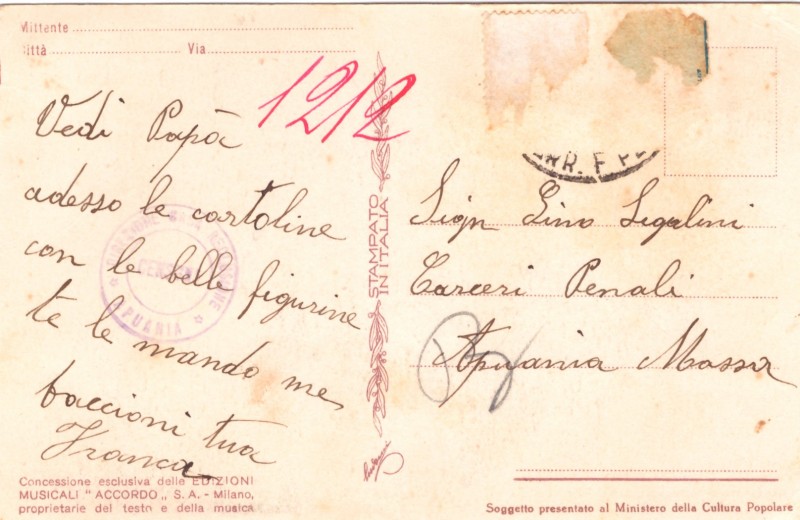 Mittente
Città Via
1212
Vedi Papà
adesso le cartoline
con le belle figurine
te le mando me
baccioni tua
Franca
STAMPATO
IN ITALIA
Sign Lino Sigalini
Carceri Penali
Apuania Massa
APUANIA
Concessione esclusiva delle EDIZIONI
MUSICALI "ACCORDO„ S.A. - Milano,
proprietarie del testo e della musica
Soggetto presentato al Ministero della Cultura Popolare